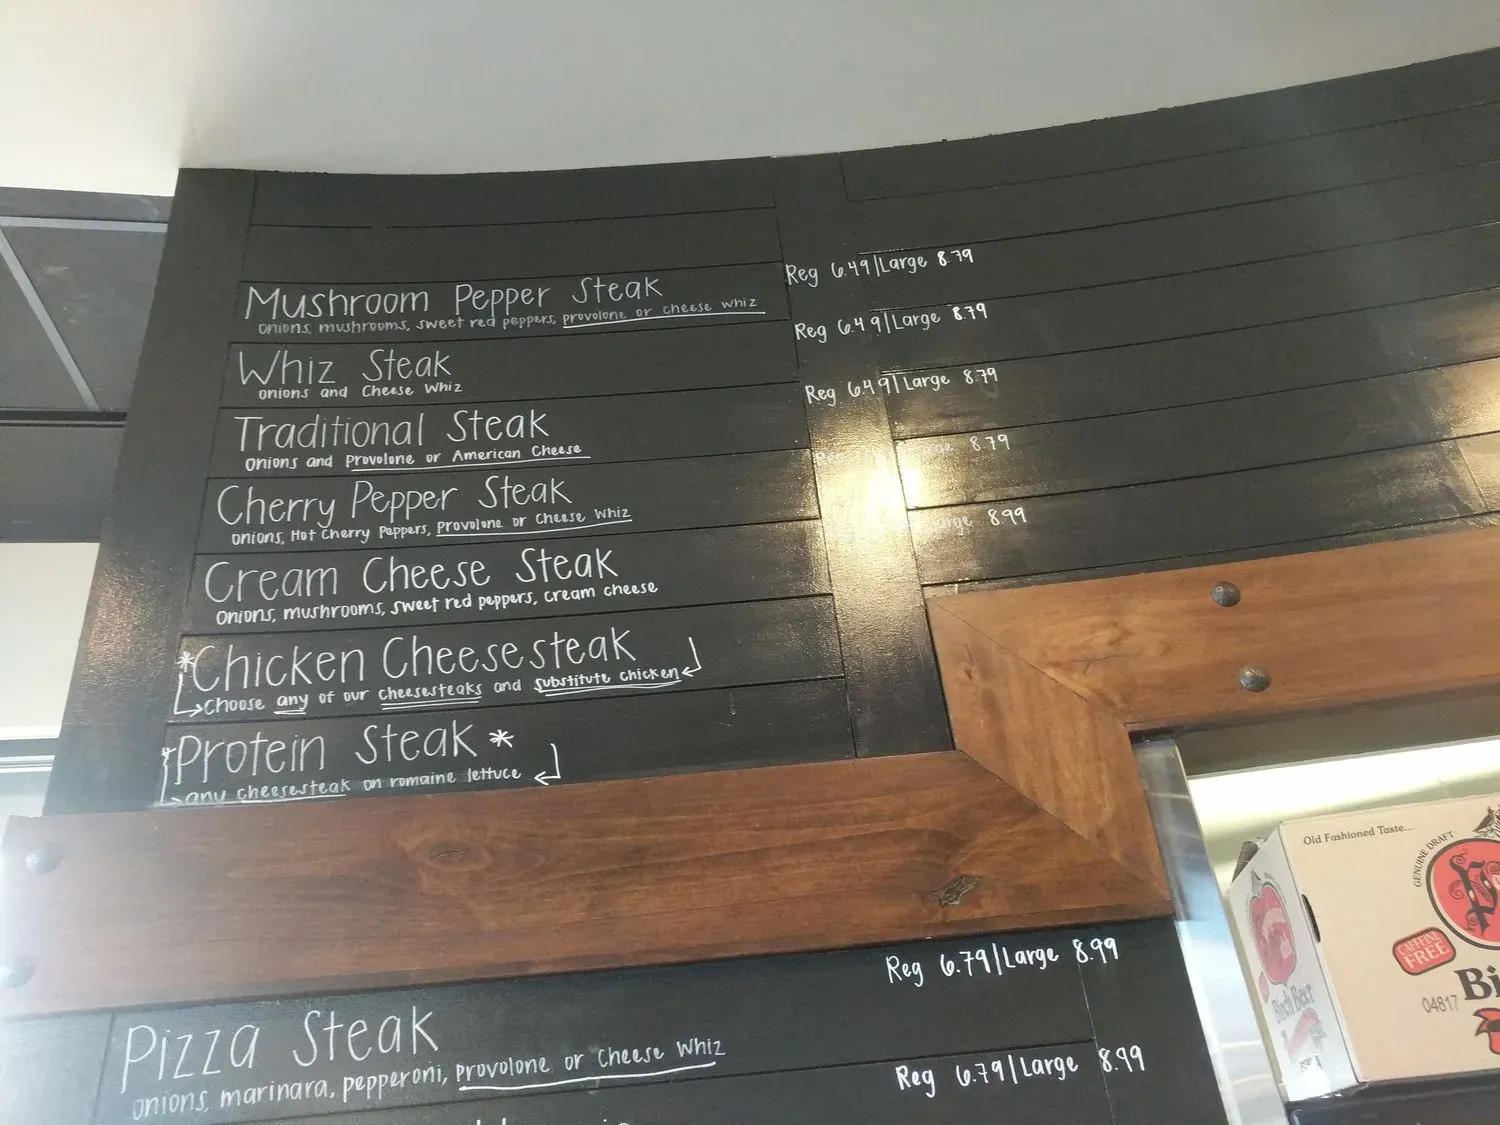 Mushroom Pepper Steak Reg 6.49 | Large 8.79
onions, mushrooms, sweet red peppers, provolone or cheese whiz
Whiz Steak Reg 6.49 | Large 8.79
onions and Cheese Whiz
Traditional Steak Reg 6.49 | Large 8.79
Onions and Provolone or American Cheese
Cherry Pepper Steak 8.79
onions, Hot Cherry Peppers, Provolone or Cheese Whiz
Cream Cheese Steak Large 8.99
Onions, mushrooms, sweet red peppers, cream cheese
*Chicken Cheesesteak
Choose any of our cheesesteaks and substitute chicken
Protein Steak *
any cheesesteak on romaine lettuce
Pizza Steak Reg 6.79 | Large 8.99
onions, marinara, pepperoni, provolone or cheese Whiz
Reg 6.79 | Large 8.99
Old Fashioned Taste...
GENUINE DRAFT
CAFFEINE
FREE
04817
Birch Beer